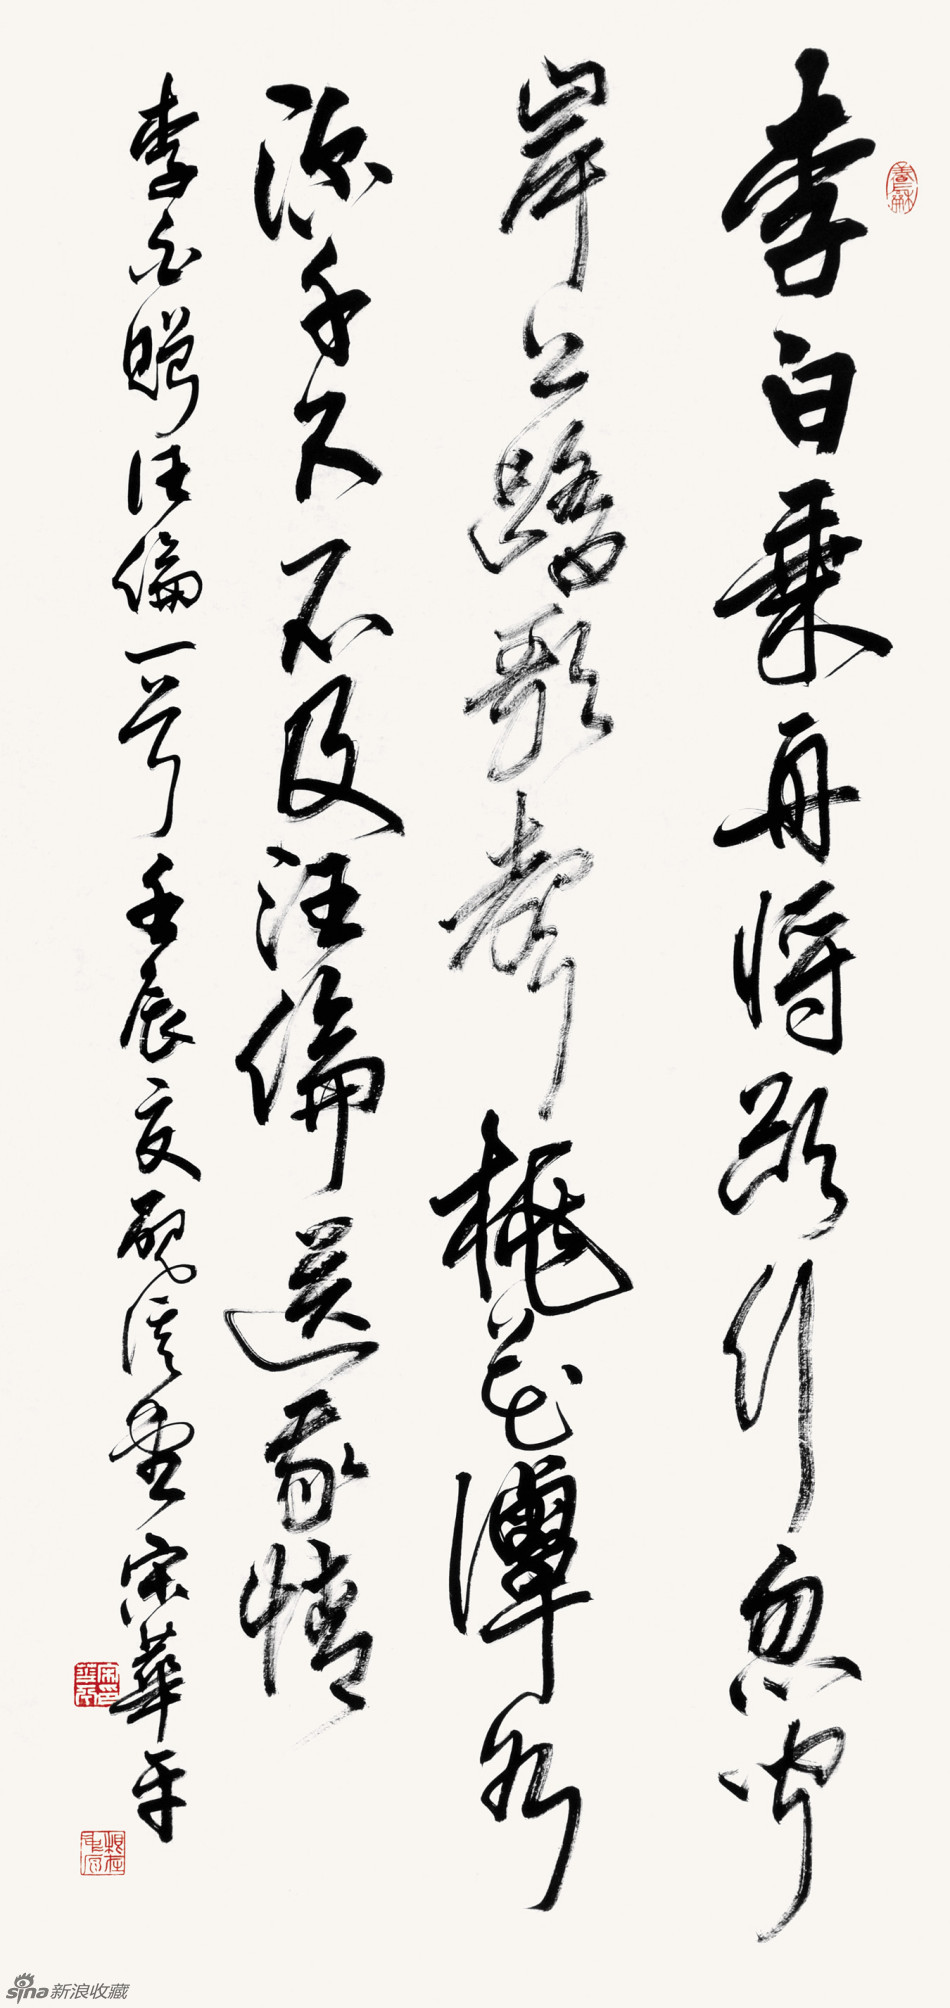 李白乘舟将欲行忽聞
岸上踏歌聲桃花潭水
深千尺不及汪倫送我情
李白贈汪倫一首壬辰夏硯溪堂宋華平
sina新浪收藏